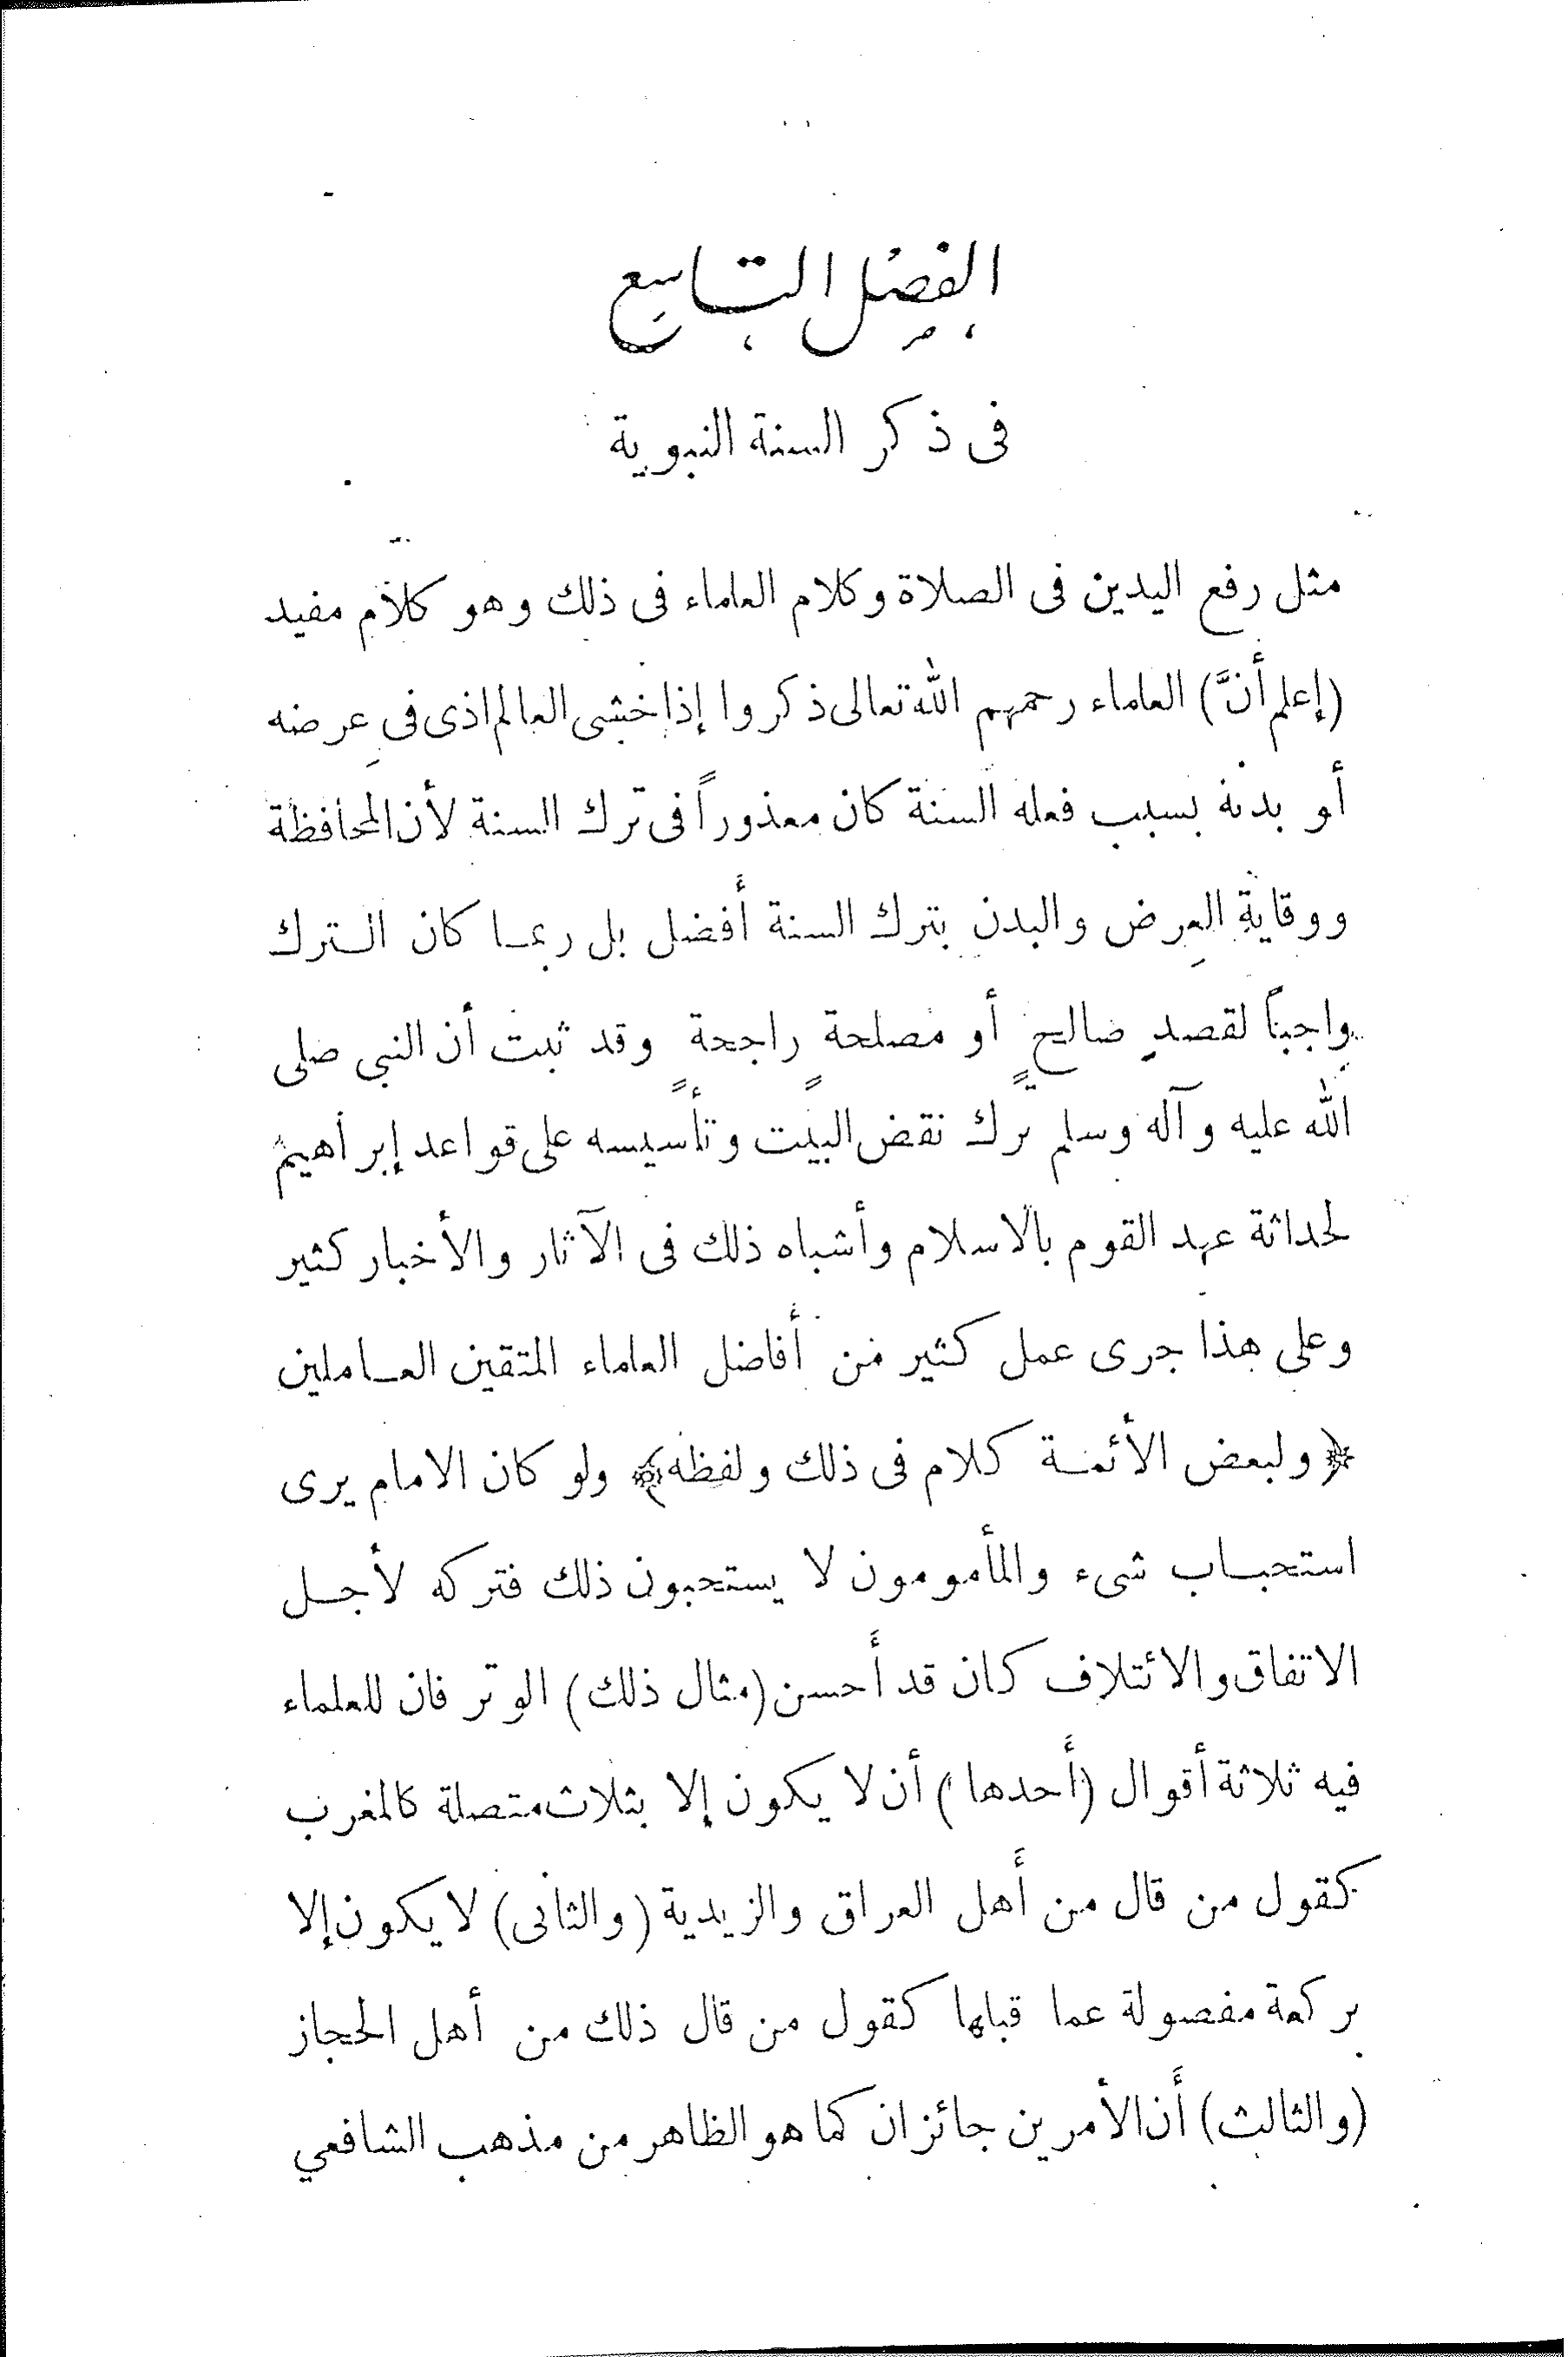 الفصل التاسع
فى ذكر السنة النبوية
مثل رفع اليدين فى الصلاة وكلام العلماء فى ذلك وهو كلام مفيد
(إعلم أنَّ) العلماء رحمهم الله تعالى ذكروا إذا خشى العالم اذى فى عِرضه
أو بدنه بسبب فعله السنة كان معذوراً فى ترك السنة لأن المحافظة
ووقاية العِرض والبدن بترك السنة أفضل بل ربما كان الترك
واجباً لقصدٍ صالحٍ أو مصلحةٍ راجحةٍ وقد ثبت أن النبى صلى
الله عليه وآله وسلم ترك نقض البيت وتأسيسه على قواعد إبراهيم
لحداثة عهد القوم بالاسلام وأشباه ذلك فى الآثار والأخبار كثير
وعلى هذا جرى عمل كثير من أفاضل العلماء المتقين العاملين
﴿ولبعض الأئمة كلام فى ذلك ولفظه﴾ ولو كان الامام يرى
استحباب شىء والمأمومون لا يستحبون ذلك فتركه لأجل
الاتفاق والائتلاف كان قد أَحسن (مثال ذلك) الوتر فان للعلماء
فيه ثلاثة أقوال (أَحدها) أن لا يكون إلا بثلاث متصلة كالمغرب
كقول من قال من أَهل العراق والزيدية (والثانى) لا يكون إلا
بركعة مفصولة عما قبلها كقول من قال ذلك من أهل الحجاز
(والثالث) أَن الأمرين جائزان كما هو الظاهر من مذهب الشافعي